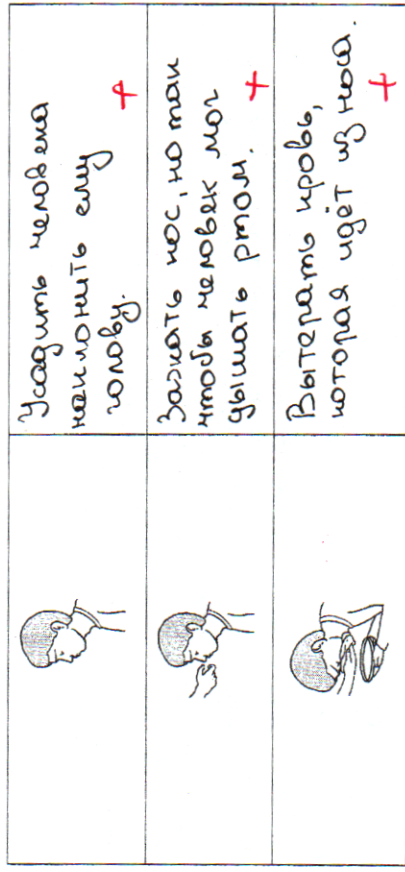 Усадить человека
наклонить ему
голову. +
Зажать нос, но так
чтобы человек мог
дышать ртом. +
Вытерать кровь,
которая идёт из носа.
+